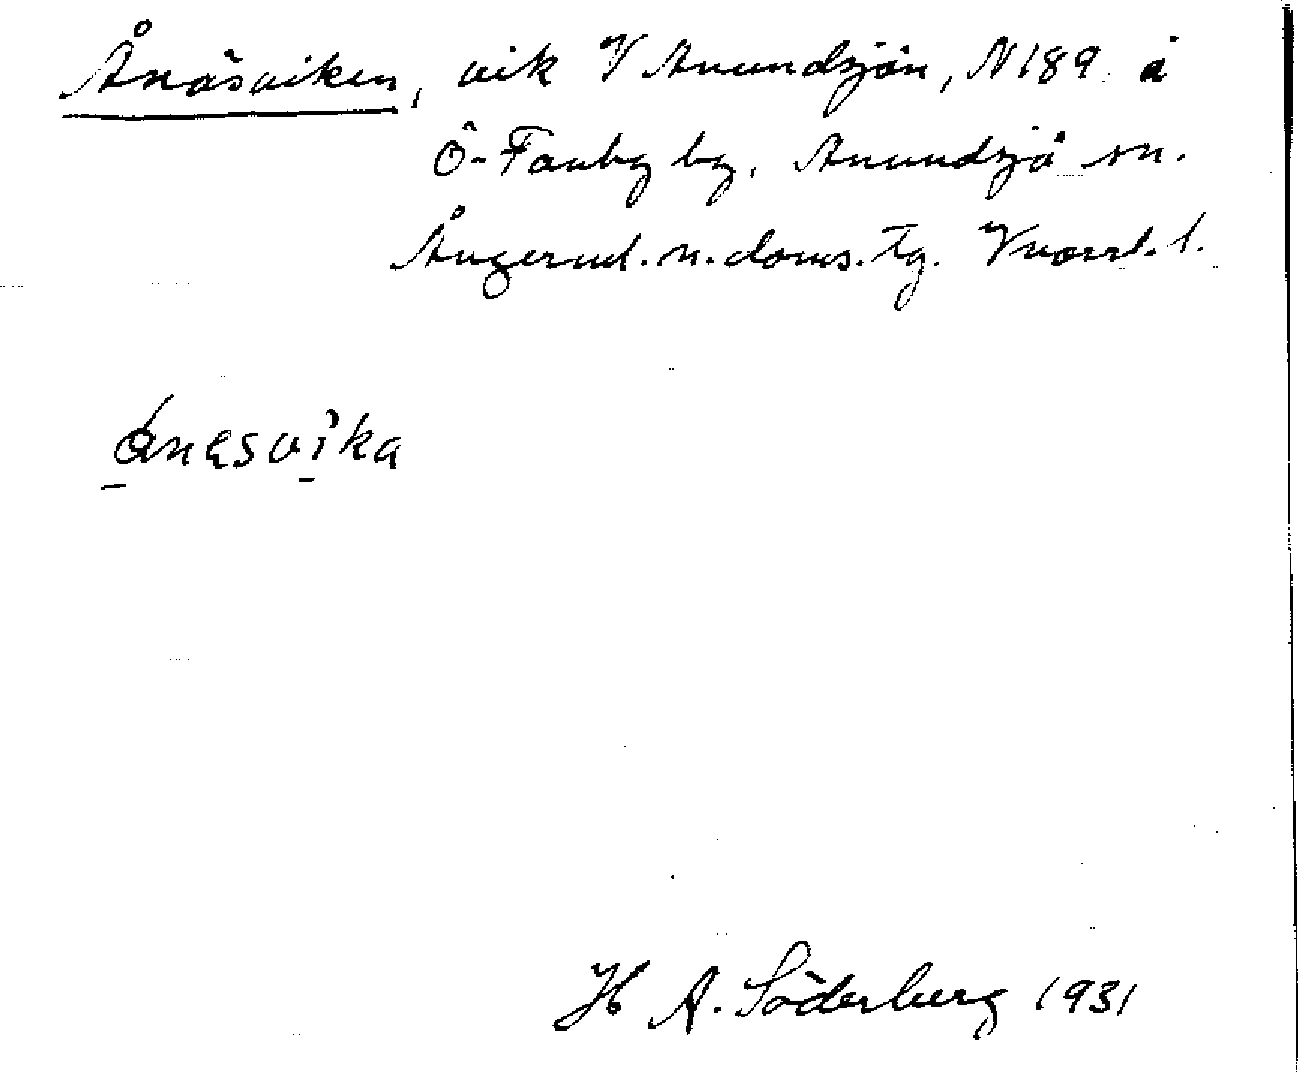 Ånäsviken, vik V Anundsjön, N 189 å
Ö-Fanby by, Anundsjö sn.
Ångerml. n. doms. tg. Vnorrl. l.
ånesvika
H A. Söderberg 1931